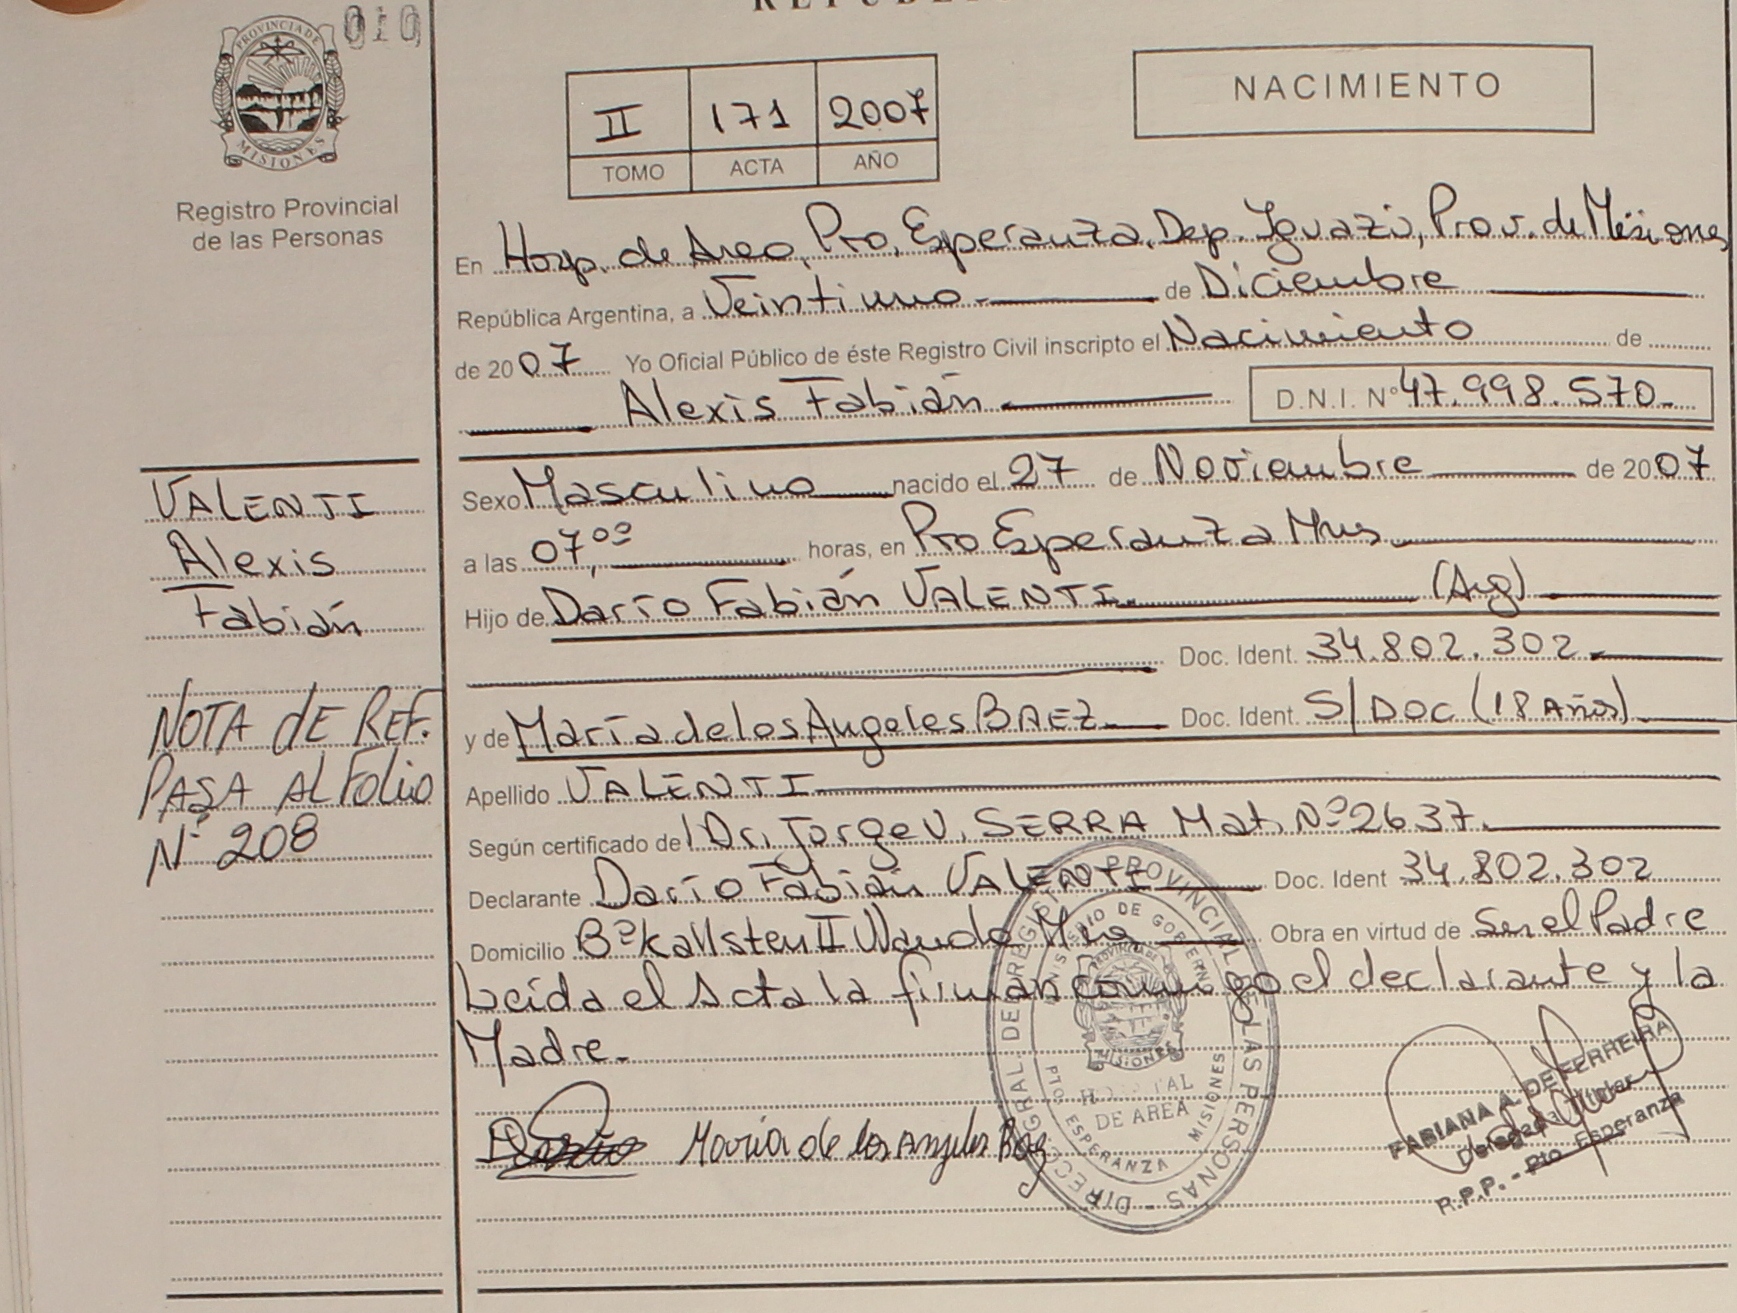 010
PROVINCIA DE
MISIONES
Registro Provincial
de las Personas
II 171 2007
TOMO ACTA AÑO
NACIMIENTO
En Hosp. de Area, Pto. Esperanza, Dep. Iguazú, Prov. de Misiones
República Argentina, a Veintiuno de Diciembre
de 2007 Yo Oficial Público de éste Registro Civil inscripto el Nacimiento de
Alexis Fabián D.N.I. Nº 47.998.570.-
Sexo Masculino nacido el 27 de Noviembre de 2007
a las 07,00 horas, en Pto Esperanza Mnes
Hijo de Darío Fabián VALENTI. (Arg)
Doc. Ident. 34.802.302
y de María de los Angeles BAEZ Doc. Ident. S/DOC (18 Años)
Apellido VALENTI
Según certificado de Dr. Jorge V. SERRA Mat. Nº 2637.
Declarante Darío Fabián VALENTI Doc. Ident 34.802.302
Domicilio Bº Kallsten II Wanda Mnes Obra en virtud de Ser el Padre
Leída el Acta la firman conmigo el declarante y la
Madre.
María de los Angeles Baez
VALENTI
Alexis
Fabián
NOTA de REF.
PASA AL FOLIO
Nº 208
DIRECC. GRAL. DEL REGISTRO PROVINCIAL DE LAS PERSONAS
MINISTERIO DE GOBIERNO
PROVINCIA DE
MISIONES
HOSPITAL
DE AREA
PTO. ESPERANZA MISIONES
FABIANA A. DE FERREIRA
Delegada Titular
R.P.P. - Pto Esperanza